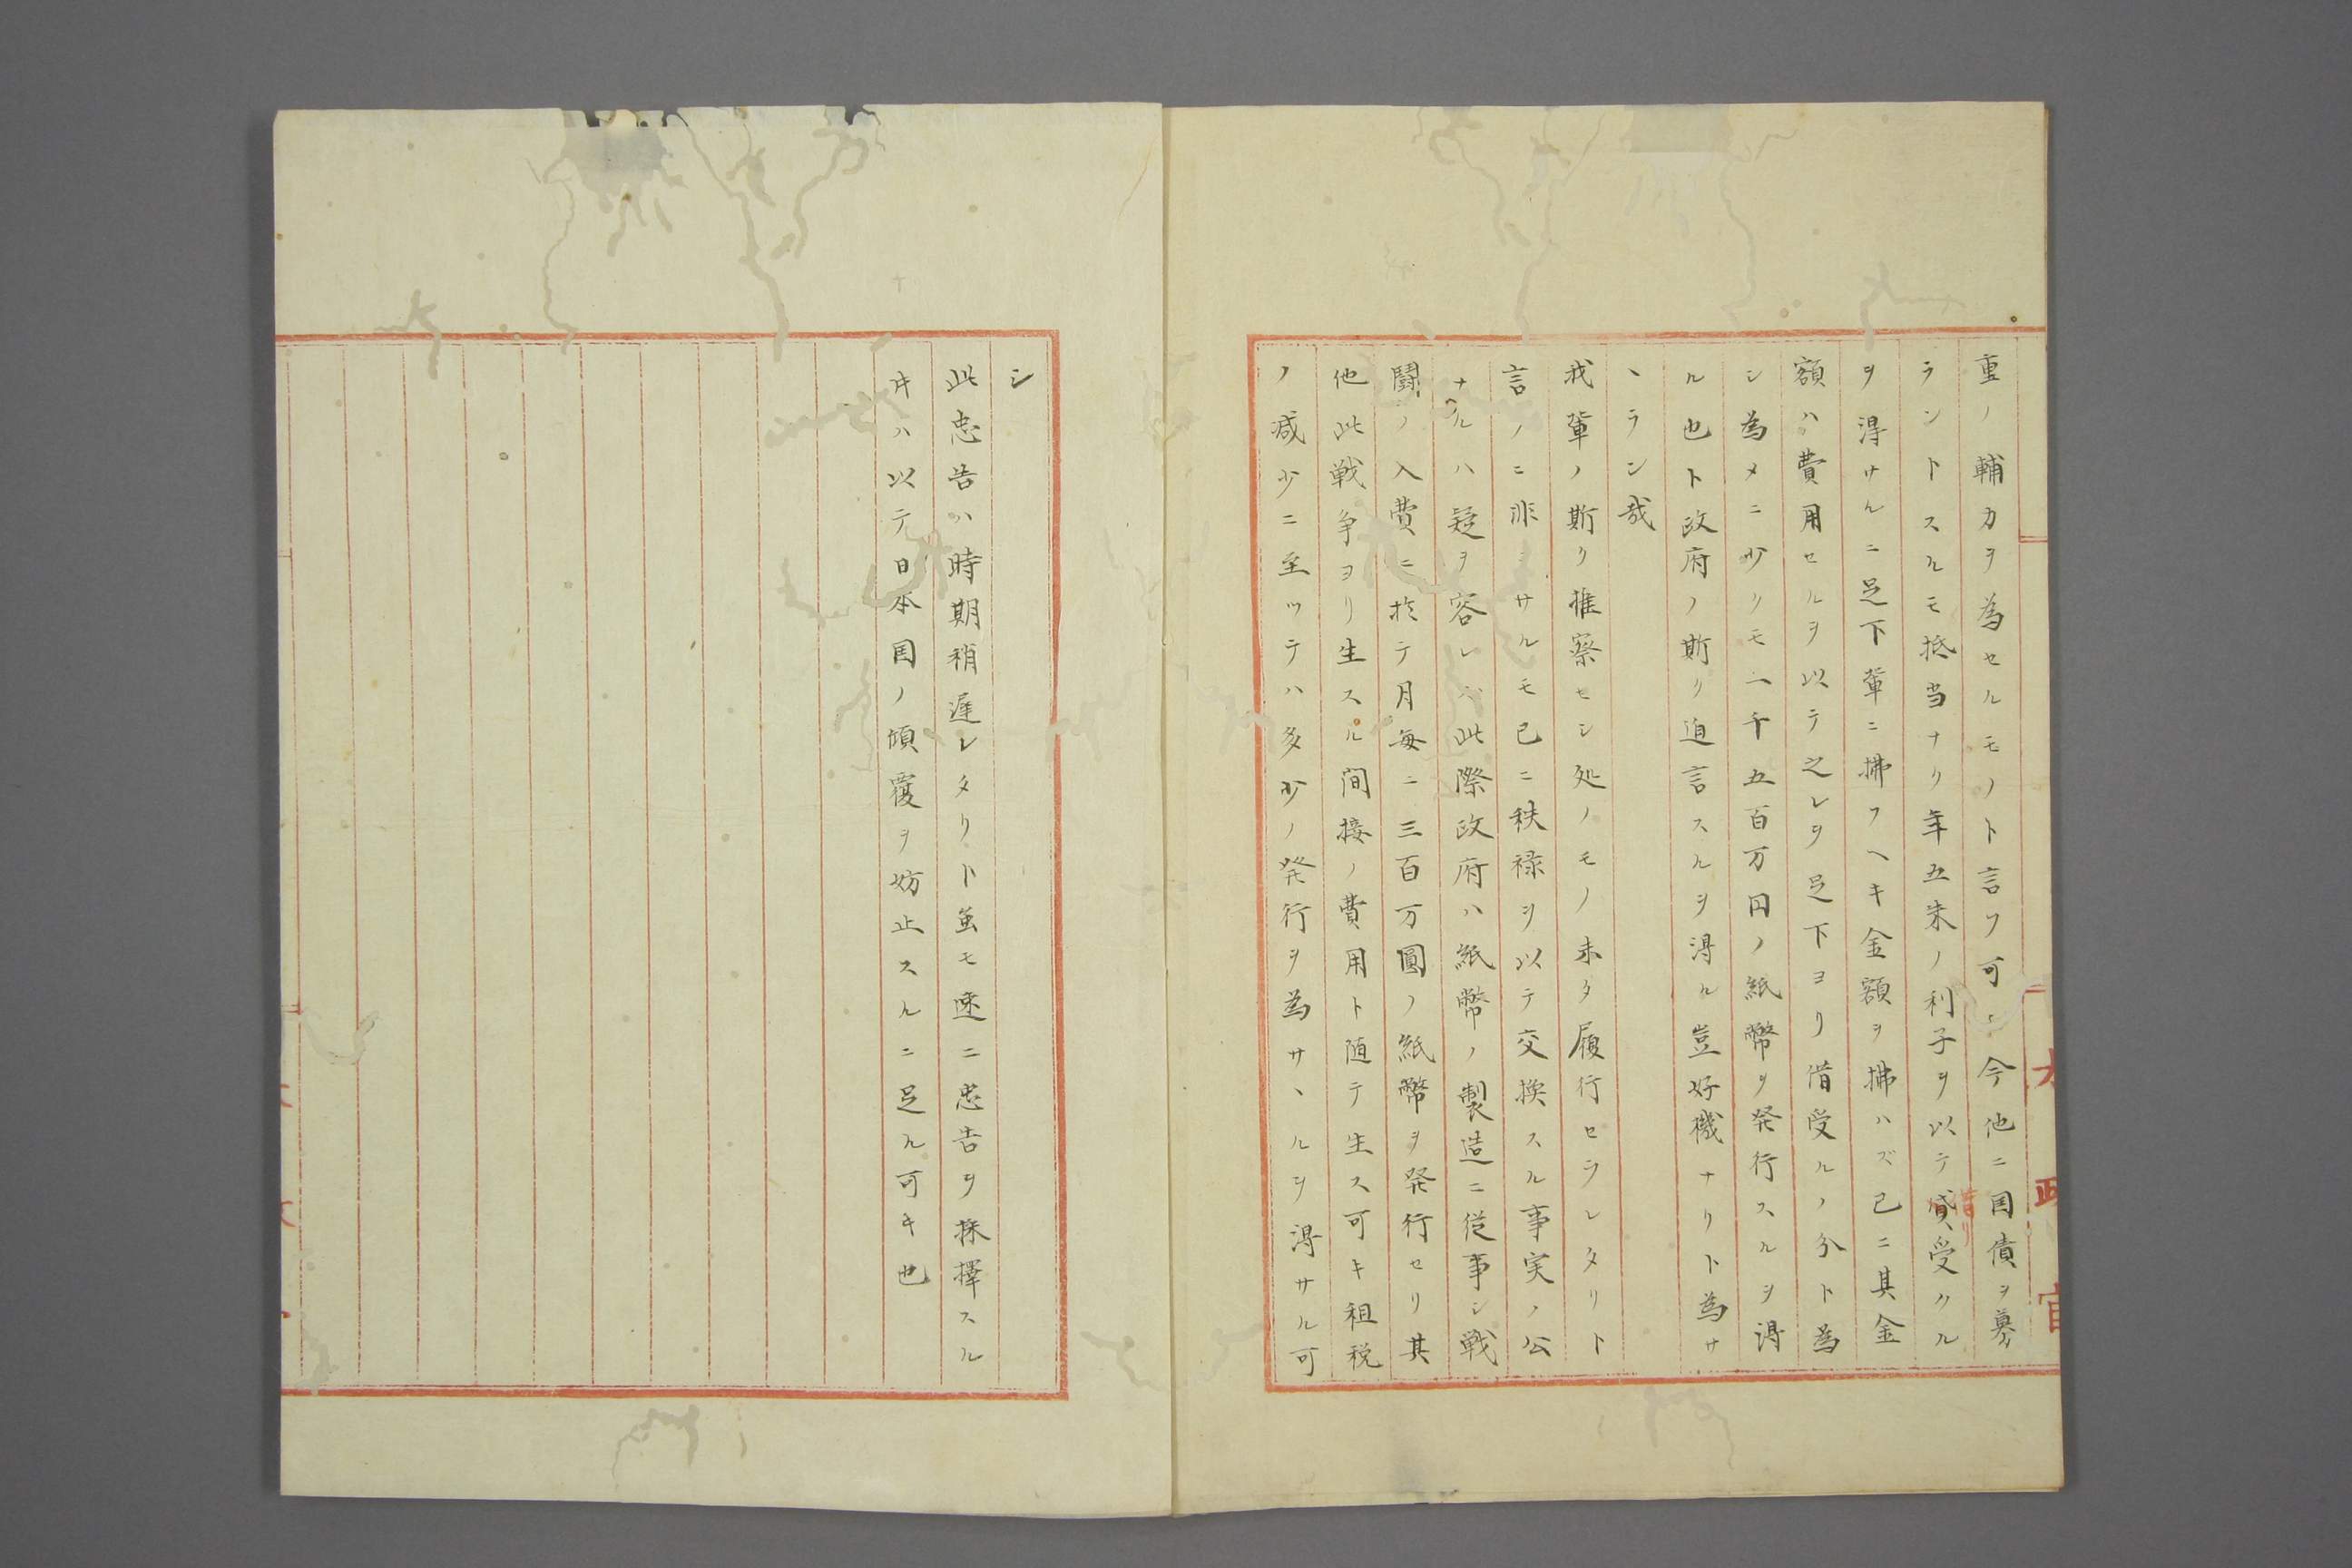 重ノ輔力ヲ為セルモノト言フ可シ今他ニ国債ヲ募
ラントスルモ抵当ナリ年五朱ノ利子ヲ以テ貸受クル
ヲ得サルニ足下輩ニ拂フヘキ金額ヲ拂ハズ已ニ其金
額ハ費用セルヲ以テ之レヲ足下ヨリ借受ルノ分ト為
シ為メニ少クモ二千五百万円ノ紙幣ヲ発行スルヲ得
ル也ト政府ノ斯ク迫言スルヲ得ル豈好機ナリト為サ
ヽラン哉
我輩ノ斯ク推察セシ処ノモノ未タ履行セラレタリト
言フニ非ラサルモ已ニ秩禄ヲ以テ交換スル事実ノ公
ナルハ疑ヲ容レズ此際政府ハ紙幣ノ製造ニ従事シ戦
闘ノ入費ニ於テ月毎ニ三百万圓ノ紙幣ヲ発行セリ其
他此戦争ヨリ生スル間接ノ費用ト随テ生ス可キ租税
ノ減少ニ至ツテハ多少ノ発行ヲ為サヽルヲ得サル可
シ
此忠告ハ時期稍遅レタリト虽モ速ニ忠告ヲ採擇スル
キハ以テ日本国ノ傾覆ヲ妨止スルニ足ル可キ也
太政官
借リ